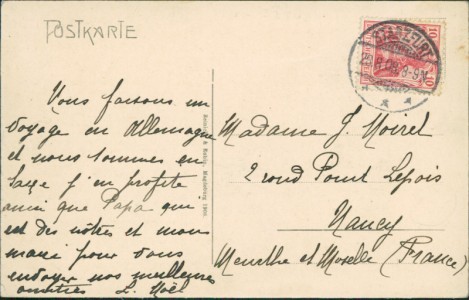 POSTKARTE
STASSFURT
8-9N.
10
Vous faisons un
voyage en Allemagne
et nous sommes en
Saxe j'en profite
ainsi que Papa qui
est des nôtres et mon
mari pour vous
envoyer nos meilleures
amitiés L. Noël
Magdeburg 1906
Madame J. Noirel
2 rond Point Lepois
Nancy
Meurthe et Moselle (France)